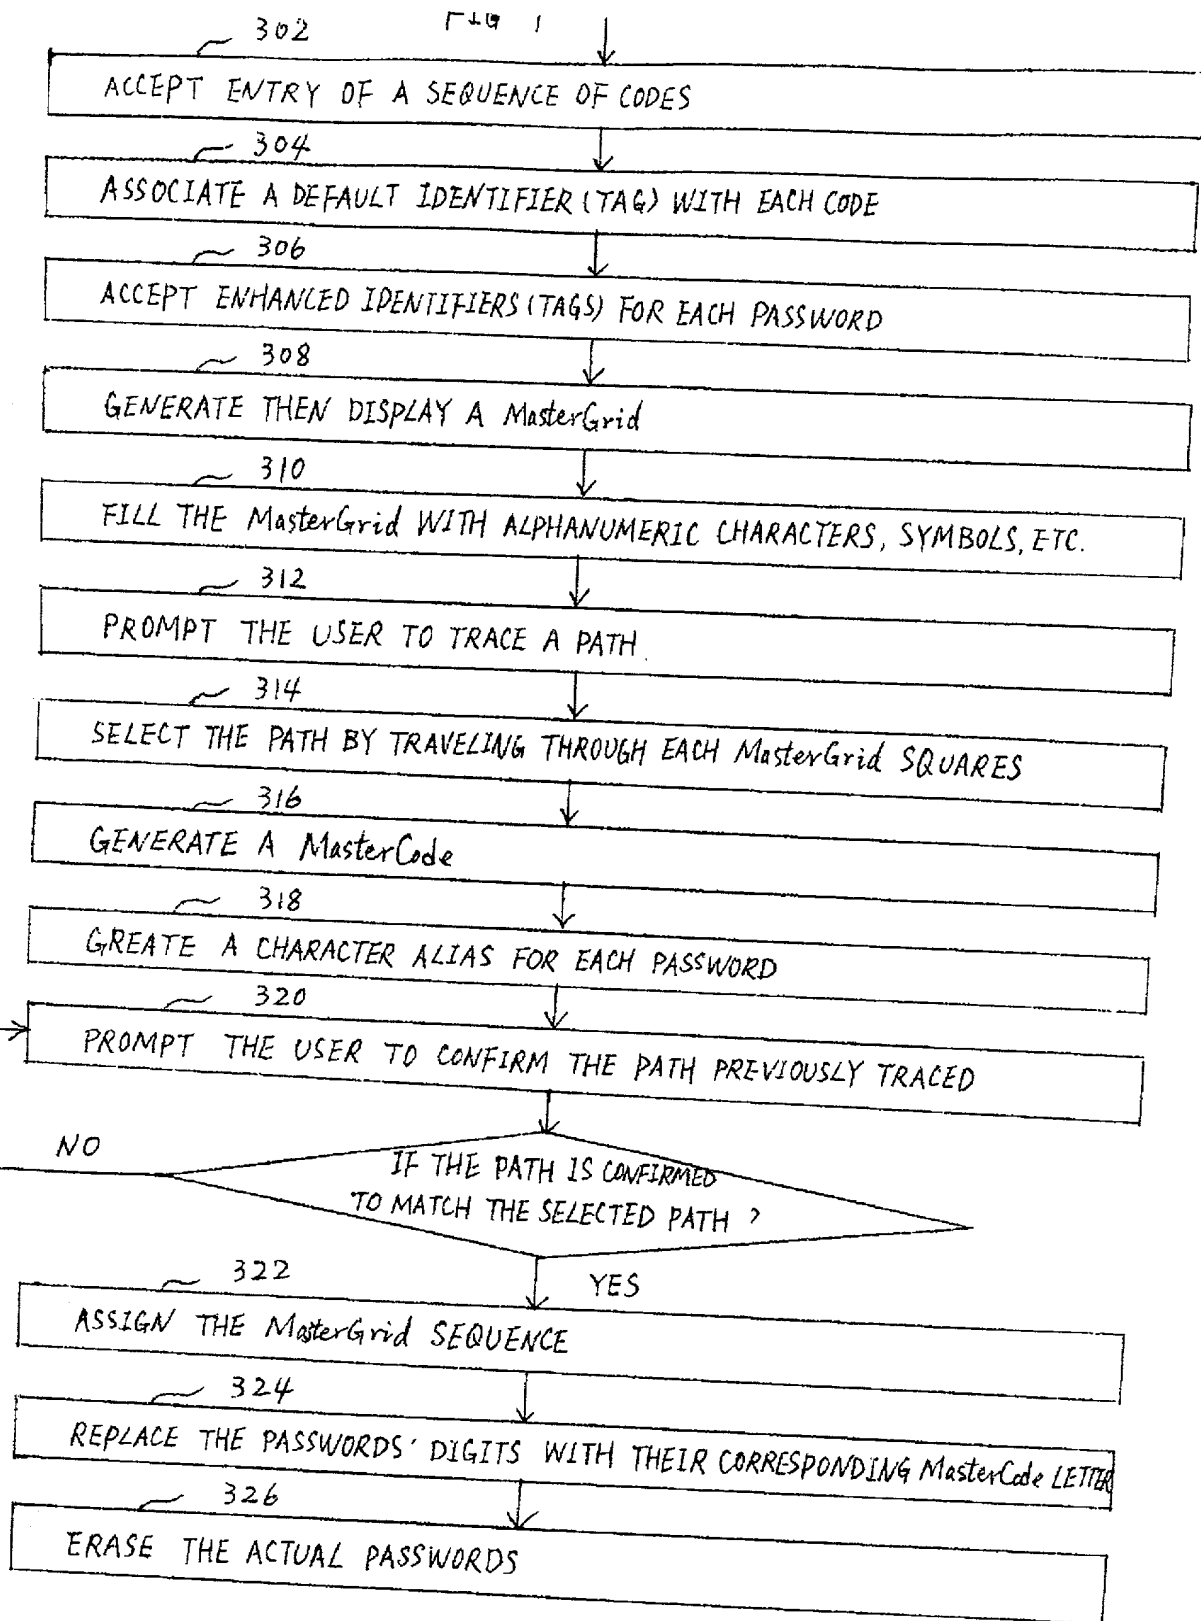 FIG 1
302
ACCEPT ENTRY OF A SEQUENCE OF CODES
304
ASSOCIATE A DEFAULT IDENTIFIER (TAG) WITH EACH CODE
306
ACCEPT ENHANCED IDENTIFIERS (TAGS) FOR EACH PASSWORD
308
GENERATE THEN DISPLAY A MasterGrid
310
FILL THE MasterGrid WITH ALPHANUMERIC CHARACTERS, SYMBOLS, ETC.
312
PROMPT THE USER TO TRACE A PATH.
314
SELECT THE PATH BY TRAVELING THROUGH EACH MasterGrid SQUARES
316
GENERATE A MasterCode
318
GREATE A CHARACTER ALIAS FOR EACH PASSWORD
320
PROMPT THE USER TO CONFIRM THE PATH PREVIOUSLY TRACED
NO
IF THE PATH IS CONFIRMED
TO MATCH THE SELECTED PATH ?
YES
322
ASSIGN THE MasterGrid SEQUENCE
324
REPLACE THE PASSWORDS' DIGITS WITH THEIR CORRESPONDING MasterCode LETTER
326
ERASE THE ACTUAL PASSWORDS